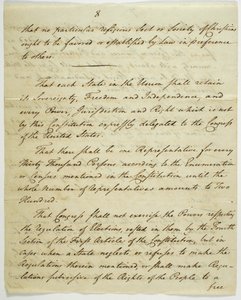 8
that no particular religious Sect or Society of Christians
ought to be favored or established by Law in preference
to others.
That each State in the Union shall retain
its Sovereignty, Freedom and Independence, and
every Power, Jurisdiction and Right which is not
by this Constitution expressly delegated to the Congress
of the United States.
That there shall be one Representative for every
Thirty Thousand Persons according to the Enumeration
or Census mentioned in the Constitution until the
whole Number of Representatives amounts to Two
Hundred.
That Congress shall not exercise the Powers respecting
the regulation of Elections, vested in them by the Fourth
Section of the First Article of the Constitution, but in
cases when a State neglects or refuses to make the
Regulations therein mentioned, or shall make Regu
lations subversive of the Rights of the People to a
free